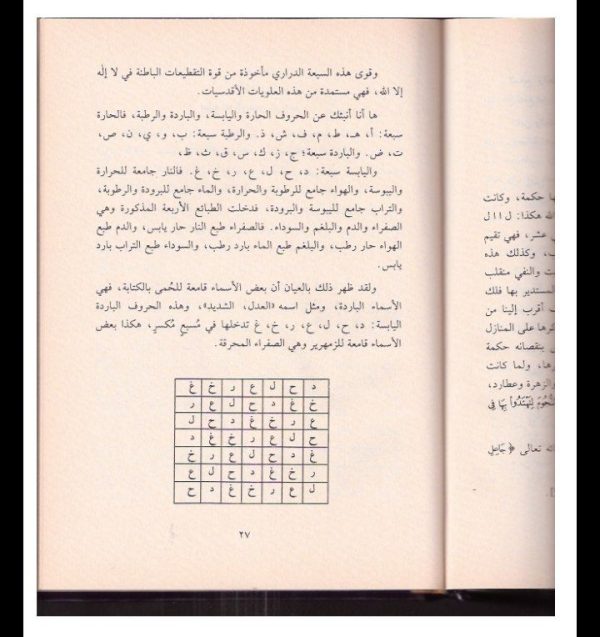 وقوى هذه السبعة الدراري مأخوذة من قوة التقطيعات الباطنة في لا إله
إلا الله، فهي مستمدة من هذه العلويات الأقدسيات.
ها أنا أنبئك عن الحروف الحارة واليابسة، والباردة والرطبة، فالحارة
سبعة: أ، هـ، ط، م، ف، ش، ذ. والرطبة سبعة: ب، و، ي، ن، ص،
ت، ض. والباردة سبعة؛ ج، ز، ك، س، ق، ث، ظ،
واليابسة سبعة: د، ح، ل، ع، ر، خ، غ. فالنار جامعة للحرارة
واليبوسة، والهواء جامع للرطوبة والحرارة، والماء جامع للبرودة والرطوبة،
والتراب جامع لليبوسة والبرودة، فدخلت الطبائع الأربعة المذكورة وهي
الصفراء والدم والبلغم والسوداء. فالصفراء طبع النار حار يابس، والدم طبع
الهواء حار رطب، والبلغم طبع الماء بارد رطب، والسوداء طبع التراب بارد
يابس.
ولقد ظهر ذلك بالعيان أن بعض الأسماء قامعة للحُمى بالكتابة، فهي
الأسماء الباردة، ومثل اسمه «العدل، الشديد»، وهذه الحروف الباردة
اليابسة: د، ح، ل، ع، ر، خ، غ تدخلها في مُسبعٍ مُكسرٍ، هكذا بعض
الأسماء قامعة للزمهرير وهي الصفراء المحرقة.
د ح ل ع ر خ غ
خ غ د ح ل ع ر
ع ر خ غ د ح ل
ح ل ع ر خ غ د
غ د ح ل ع ر خ
ر خ غ د ح ل ع
ل ع ر خ غ د ح
٢٧
ها حكمة، وكانت
لله هكذا: ل ا ا ل
ي عشر، فهي تقيم
ب، وكذلك هذه
ت والنفي منقلب
المستدير بها فلك
ف أقرب إلينا من
كرها على المنازل
بنقصانه حكمة
رها، ولما كانت
والزهرة وعطارد،
النُّجُومَ لِتَهْتَدُوا بِهَا فِي
لله تعالى ﴿جَاعِلِ